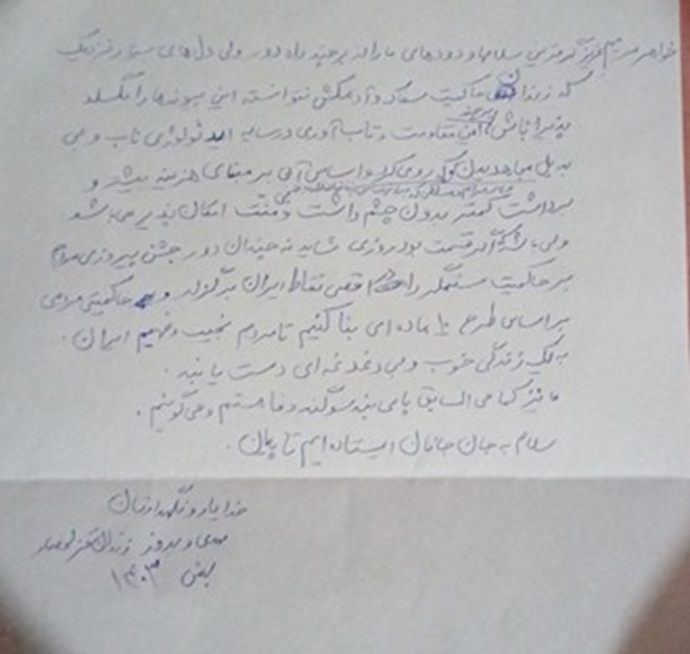 خواهر مریم عزیز گرمترین سلامها و درودهای ما را از هر چند راه دور ولی دل‌های بسیار نزدیک
که زندان حاکمیت سفاک و آدمکش نتوانسته این پیوندها را بگسلد
پذیرا باش. این مقاومت و تاب‌آوری در سایه ایدئولوژی ناب و بی
بدیل مجاهدین که روی و اساس آن بر مبنای هزینه بیشتر و
برداشت کمتر بدون چشم داشت و منت امکان پذیر می‌باشد
ولی باشد که اگر قسمت بود روزی شاید نه چندان دور جشن پیروزی مردم
بر حاکمیت ستمگر را در اقصی نقاط ایران برگزار و حاکمیتی مردمی
بر اساس طرح ۱۰ ماده‌ای بنا کنیم تا مردم نجیب و فهیم ایران
به یک زندگی خوب و بی دغدغه‌ای دست یابند.
ما نیز کما فی السابق پای بند سوگند وفا هستیم و می‌گوییم.
سلام به جان جانان ایستاده‌ایم تا پایان.
خدا یار و نگهدارتان
مهدی و بهروز زندان قزلحصار
بهمن ۱۴۰۳